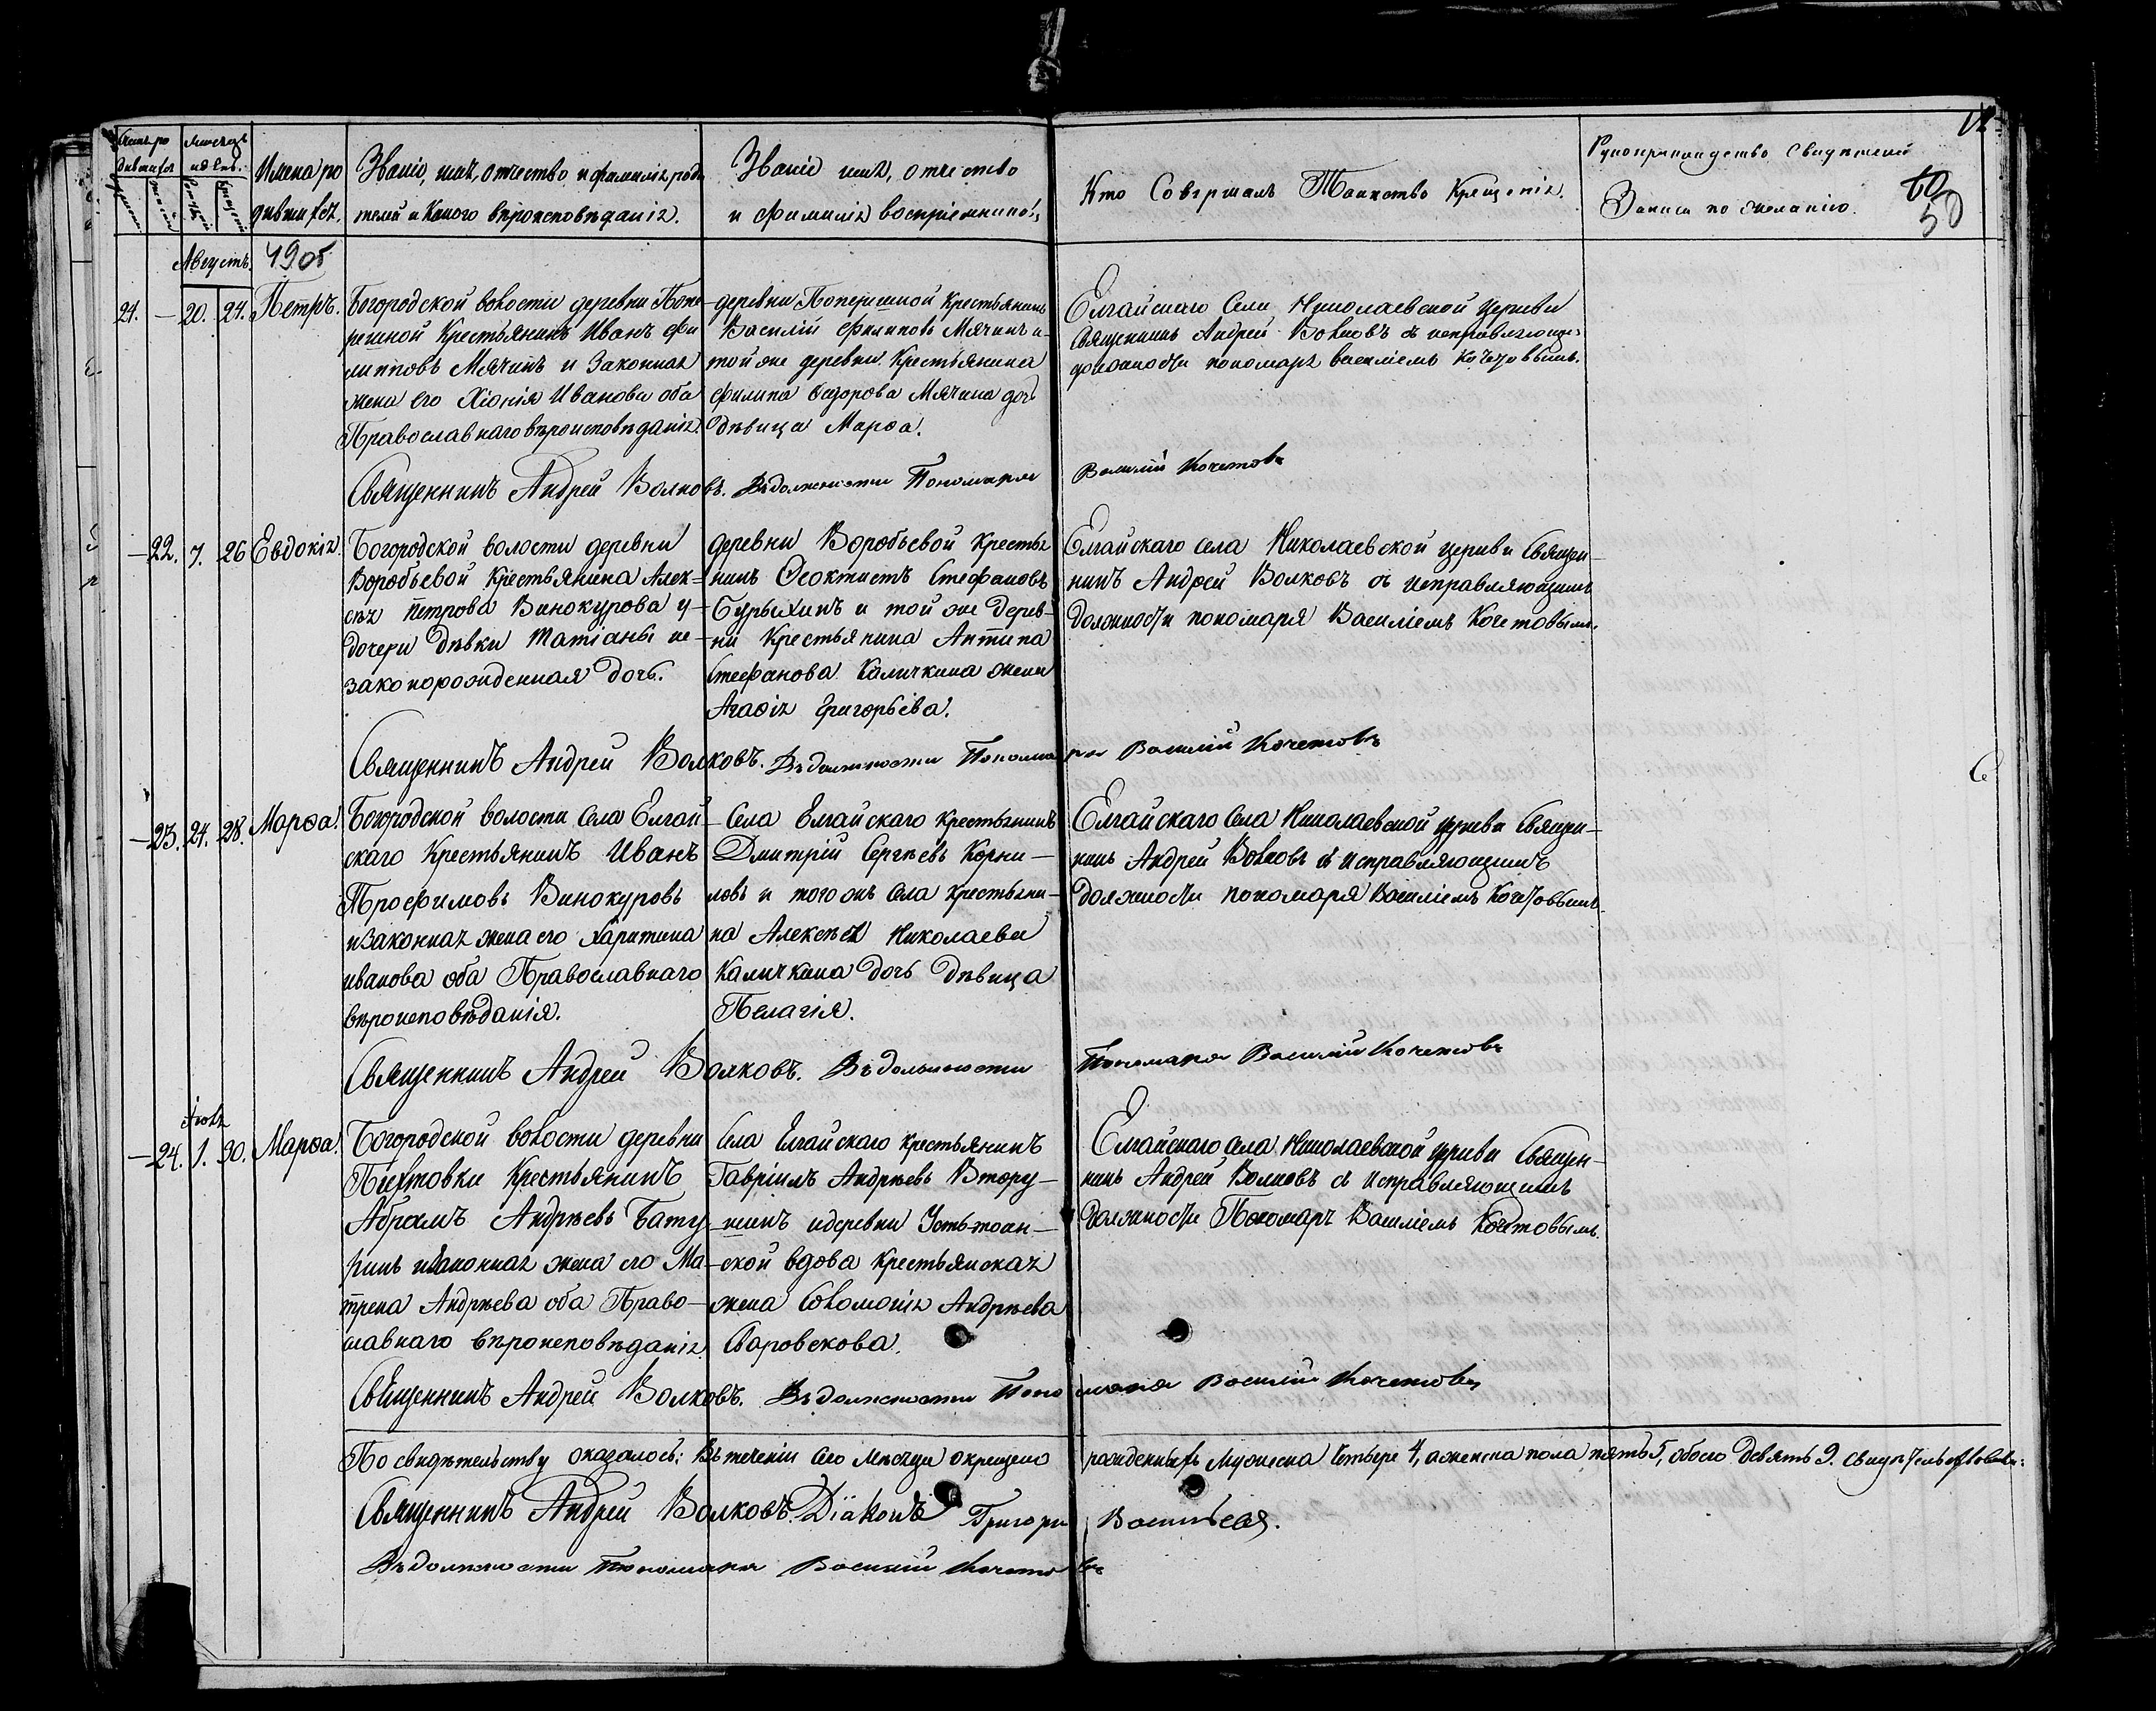 Званіе, имя, отчество и фамилія роди
телей и какого вѣроисповѣданія.
Имена ро
дившихся.
Званіе имя, отчество
и фамилія воспріемниковъ
Кто Совершалъ Таинство Крещенія.
Рукоприкладство Свидѣтелей
Записи по желанію.
60
50
Августъ. 1905
21. — 20. 21. Петръ.
Богородской волости деревни Попе
решной Крестьянинъ Иванъ Фи
липповъ Мячинъ и Законная
жена его Хіонія Иванова оба
Православнаго вѣроисповѣданія.
деревни Поперешной Крестьянинъ
Василій Филиповъ Мячинъ и
той же деревни Крестьянина
Филипа Сидорова Мячина дочь
дѣвица Марѳа.
Елгайскаго Села Николаевской Церкви
Священникъ Андрей Волковъ съ исправляющ:
должность пономаря Василіемъ Кочетовымъ.
Священникъ Андрей Волковъ. Въ должности Пономаря Василій Кочетовъ
— 22. 7. 26 Евдокія.
Богородской волости деревни
Воробьевой Крестьянина Алек-
сѣя Петрова Винокурова у
дочери дѣвки Татіаны не-
законорожденная дочь.
деревни Воробьевой Кресть
нинъ Ѳеоктистъ Стефановъ
Бурыхинъ и той же дерев-
ни Крестьянина Антипа
Стефанова Каличкина жена
Агаѳія Григорьева.
Елгайскаго села Николаевской церкви Священ-
никъ Андрей Волковъ съ исправляющимъ
должность пономаря Василіемъ Кочетовымъ.
Священникъ Андрей Волковъ. Въ должности Пономаря Василій Кочетовъ
— 23. 24. 28. Марѳа.
Богородской волости Села Елгай
скаго Крестьянинъ Иванъ
Трофимовъ Винокуровъ
и Законная жена его Харитина
Иванова оба Православнаго
вѣроисповѣданія.
Села Елгайскаго Крестьянинъ
Дмитрій Сергѣевъ Корни—
ловъ и того жъ Села Крестьяни-
на Алексѣя Николаева
Каличкина дочь дѣвица
Пелагія.
Елгайскаго Села Николаевской церкви Священ-
никъ Андрей Волковъ съ исправляющимъ
должность пономаря Василіемъ Кочетовымъ.
Священникъ Андрей Волковъ. Въ должности Пономаря Василій Кочетовъ
— 24. 1. 30. Марѳа.
Богородской волости деревни
Пихтовки Крестьянинъ
Абрамъ Андрѣевъ Бату
ринъ и Законная жена его Ма-
трена Андрѣева оба Право—
славнаго вѣроисповѣданія.
Села Елгайскаго Крестьянинъ
Гавріилъ Андрѣевъ Втору—
шинъ и деревни Усть-тоян—
ской вдова Крестьянская
жена Соломонія Андрѣева
Сваровскова.
Елгайскаго Села Николаевской церкви Священ-
никъ Андрей Волковъ съ исправляющимъ
должность Пономаря Василіемъ Кочетовымъ.
Священникъ Андрей Волковъ. Въ должности Пономаря Василій Кочетовъ
По свидѣтельству оказалось: Въ теченіи Сего Мѣсяца окрещено рожденныхъ Мужеска Четыре 4, а женска пола пять 5, обоего девять 9.
Священникъ Андрей Волковъ. Діаконъ Григорій Васильевъ.
Въ должности Пономаря Василій Кочетовъ